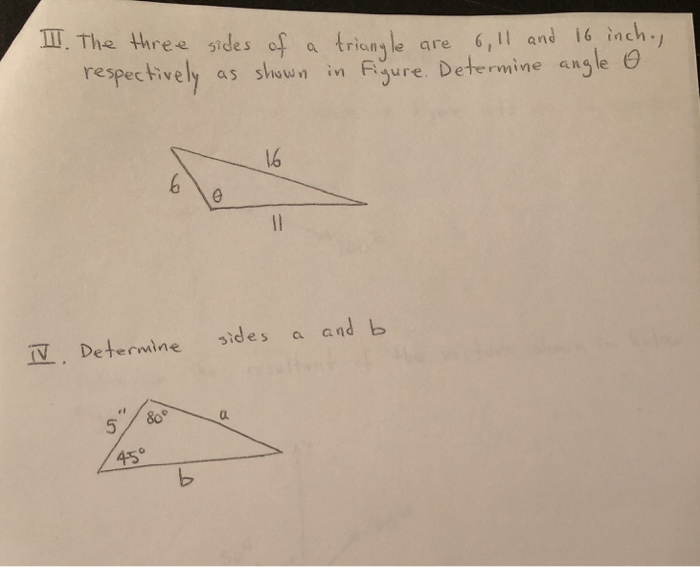 III. The three sides of a triangle are 6, 11 and 16 inch.,
respectively as shown in Figure. Determine angle θ
16
6
θ
11
IV. Determine sides a and b
5" 80° a
45°
b